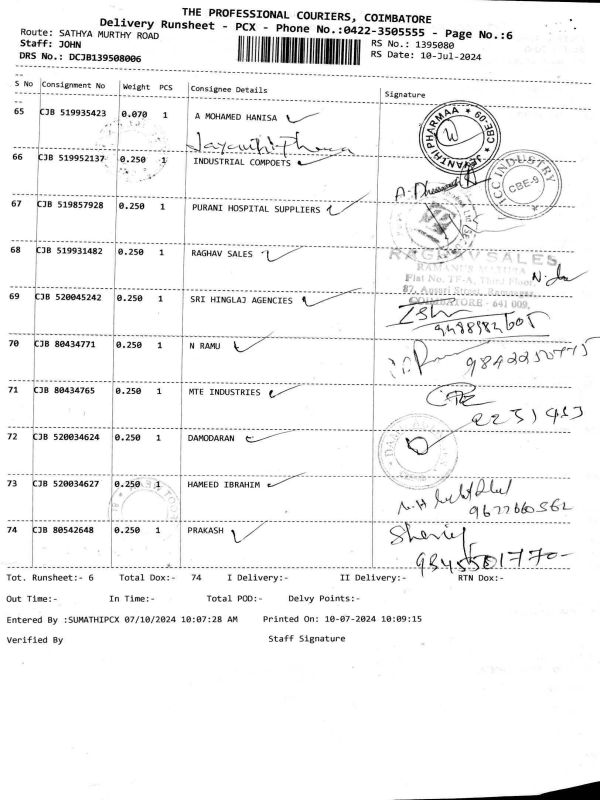 THE PROFESSIONAL COURIERS, COIMBATORE
Delivery Runsheet - PCX - Phone No.:0422-3505555 - Page No.:6
Route: SATHYA MURTHY ROAD
Staff: JOHN
RS No.: 1395080
DRS No.: DCJB139508006
RS Date: 10-Jul-2024
S No Consignment No Weight PCS Consignee Details Signature
65 CJB 519935423 0.070 1 A MOHAMED HANISA
JEYANTHI PHARMAA * CBE-09 *
Jayanthi Pharma
66 CJB 519952137 0.250 1 INDUSTRIAL COMPOETS
ICC INDUSTRY
CBE-9
67 CJB 519857928 0.250 1 PURANI HOSPITAL SUPPLIERS
68 CJB 519931482 0.250 1 RAGHAV SALES
RAGHAV SALES
Flat No. TF-A, Third Floor
87, Ansari Street, Ramnagar,
COIMBATORE - 641 009.
69 CJB 520045242 0.250 1 SRI HINGLAJ AGENCIES
70 CJB 80434771 0.250 1 N RAMU
71 CJB 80434765 0.250 1 MTE INDUSTRIES
72 CJB 520034624 0.250 1 DAMODARAN
73 CJB 520034627 0.250 1 HAMEED IBRAHIM
9677660562
74 CJB 80542648 0.250 1 PRAKASH
9345501770-
Tot. Runsheet:- 6 Total Dox:- 74 I Delivery:- II Delivery:- RTN Dox:-
Out Time:- In Time:- Total POD:- Delvy Points:-
Entered By :SUMATHIPCX 07/10/2024 10:07:28 AM Printed On: 10-07-2024 10:09:15
Verified By Staff Signature